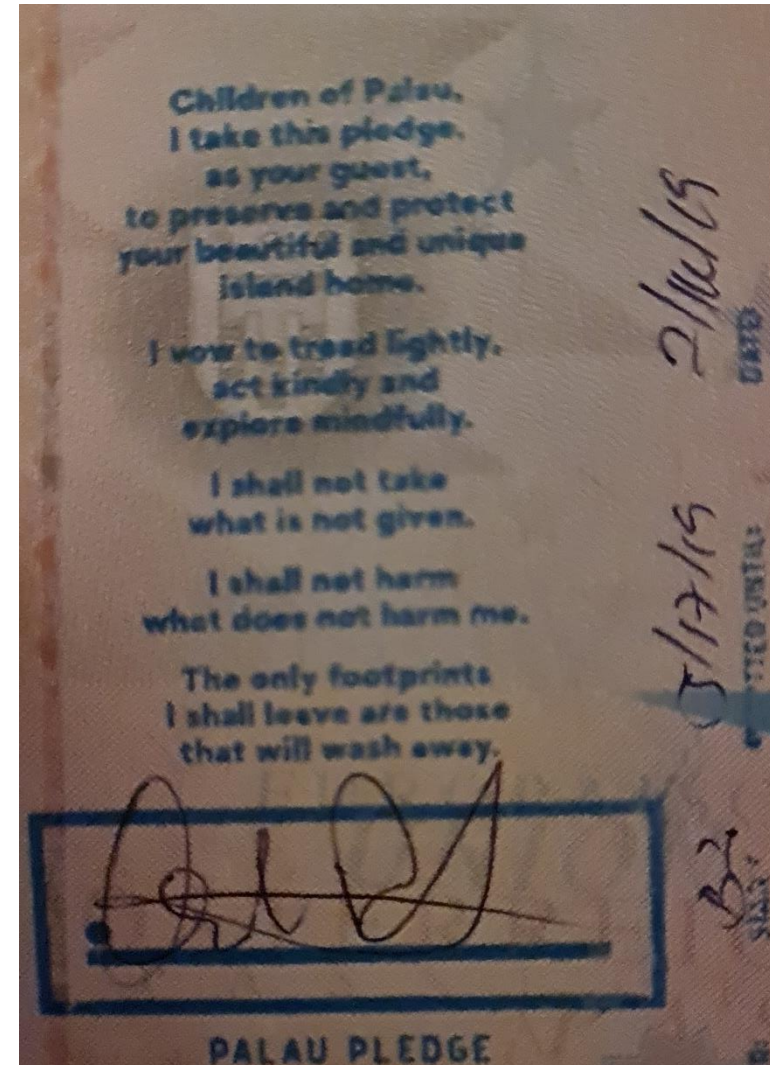 Children of Palau,
I take this pledge,
as your guest,
to preserve and protect
your beautiful and unique
island home.
I vow to tread lightly,
act kindly and
explore mindfully.
I shall not take
what is not given.
I shall not harm
what does not harm me.
The only footprints
I shall leave are those
that will wash away.
PALAU PLEDGE
DATE:
5/17/19
UNTIL:
B2